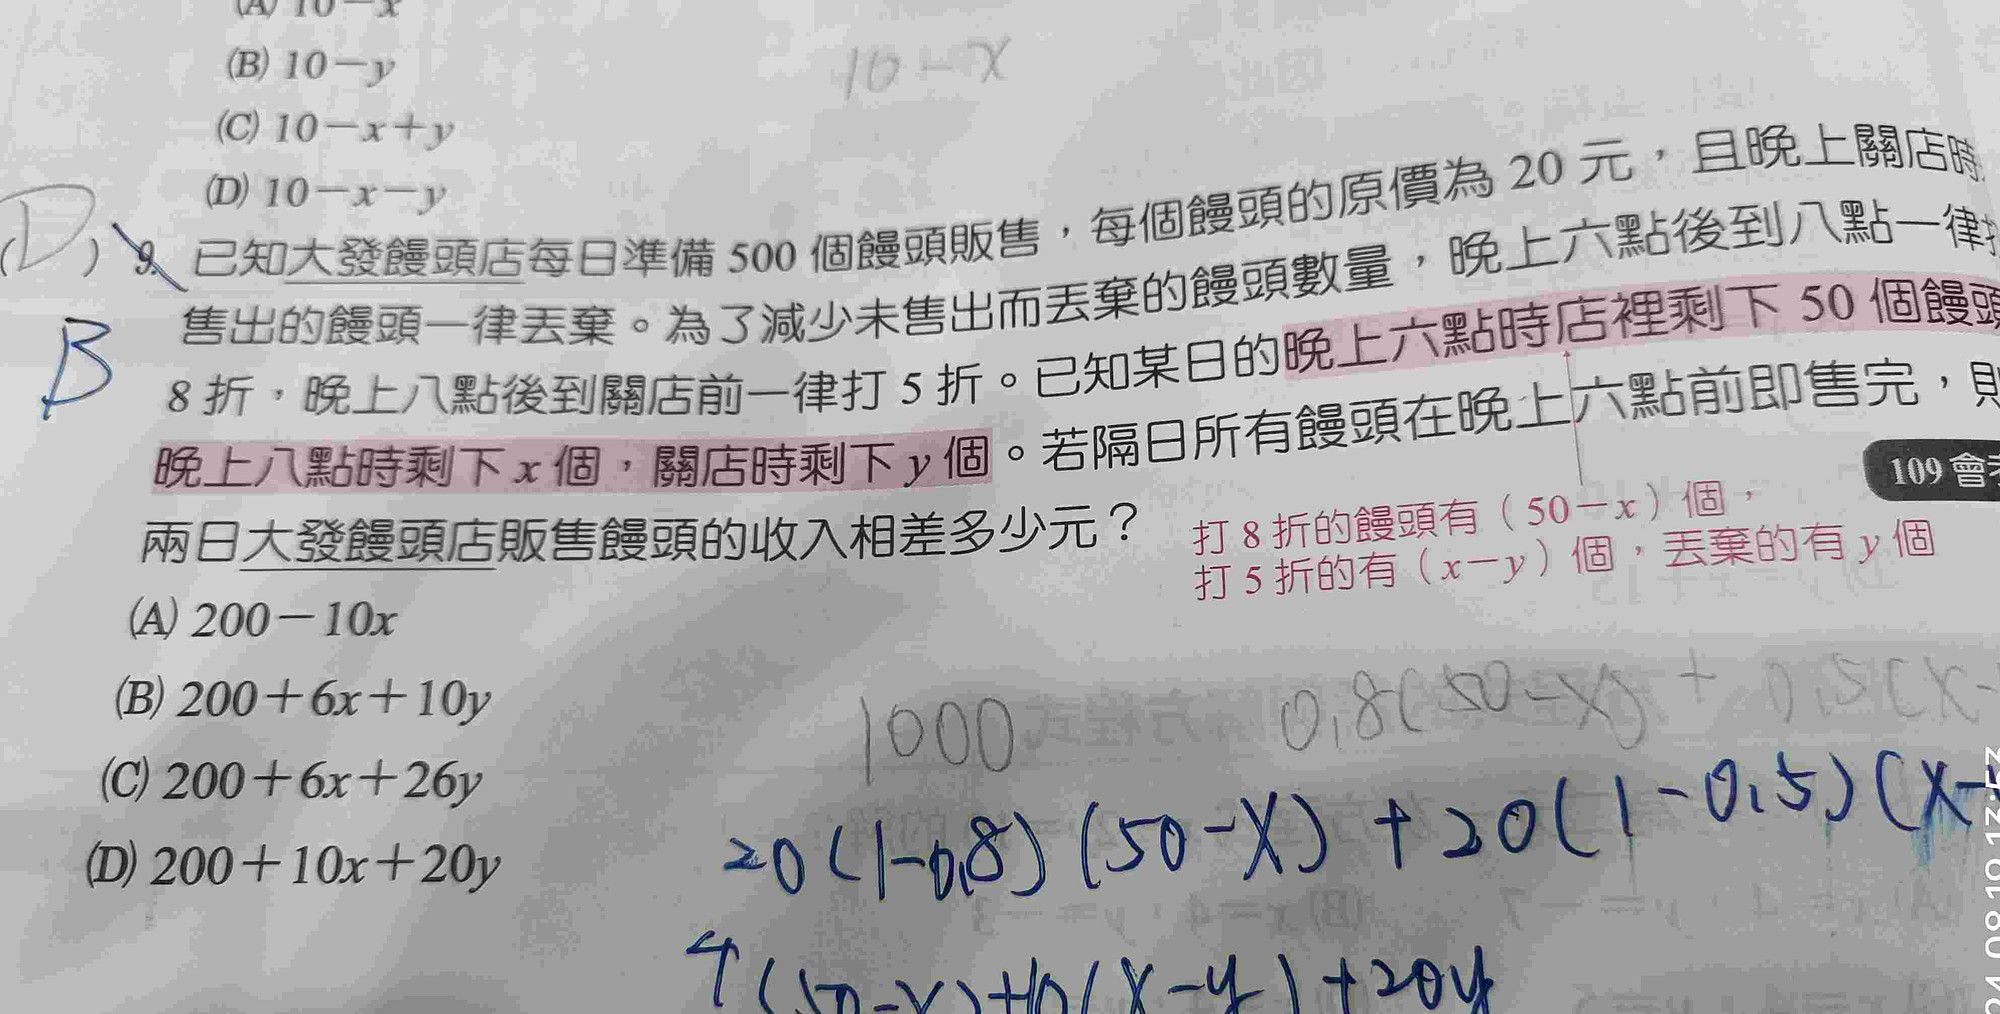 (A) 10－x
(B) 10－y
(C) 10－x＋y
(D) 10－x－y
10－x
(D)
B
9. 已知大發饅頭店每日準備 500 個饅頭販售，每個饅頭的原價為 20 元，且晚上關店時
售出的饅頭一律丟棄。為了減少未售出而丟棄的饅頭數量，晚上六點後到八點一律
8 折，晚上八點後到關店前一律打 5 折。已知某日的晚上六點時店裡剩下 50 個饅頭
晚上八點時剩下 x 個，關店時剩下 y 個。若隔日所有饅頭在晚上六點前即售完，則
兩日大發饅頭店販售饅頭的收入相差多少元？
109 會考
打 8 折的饅頭有（50－x）個，
打 5 折的有（x－y）個，丟棄的有 y 個
(A) 200－10x
(B) 200＋6x＋10y
(C) 200＋6x＋26y
(D) 200＋10x＋20y
1000
0.8(50-x) + 0.5(x-
20(1-0.8)(50-x)+20(1-0.5)(x-
4(50-x)+10(x-y)+20y